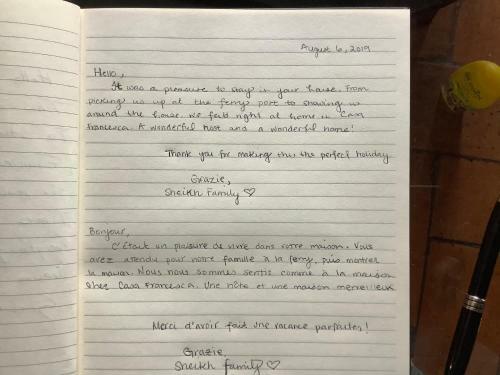 August 6, 2019
Hello,
It was a pleasure to stay in your house. From
picking us up at the ferry port to showing us
around the house. We felt right at home in Casa
Francesca. A wonderful host and a wonderful home!
Thank you for making this the perfect holiday
Grazie,
Sheikh Family ♡
Bonjour,
C'était un plaisure de vivre dans votre maison. Vous
avez attendu pour notre famille à la ferry, puis montrer
la maison. Nous nous sommes sentis comme à la maison
chez Casa Francesca. Une hôte et une maison merveilleux
Merci d'avoir fait une vacance parfaites!
Grazie
Sheikh family ♡